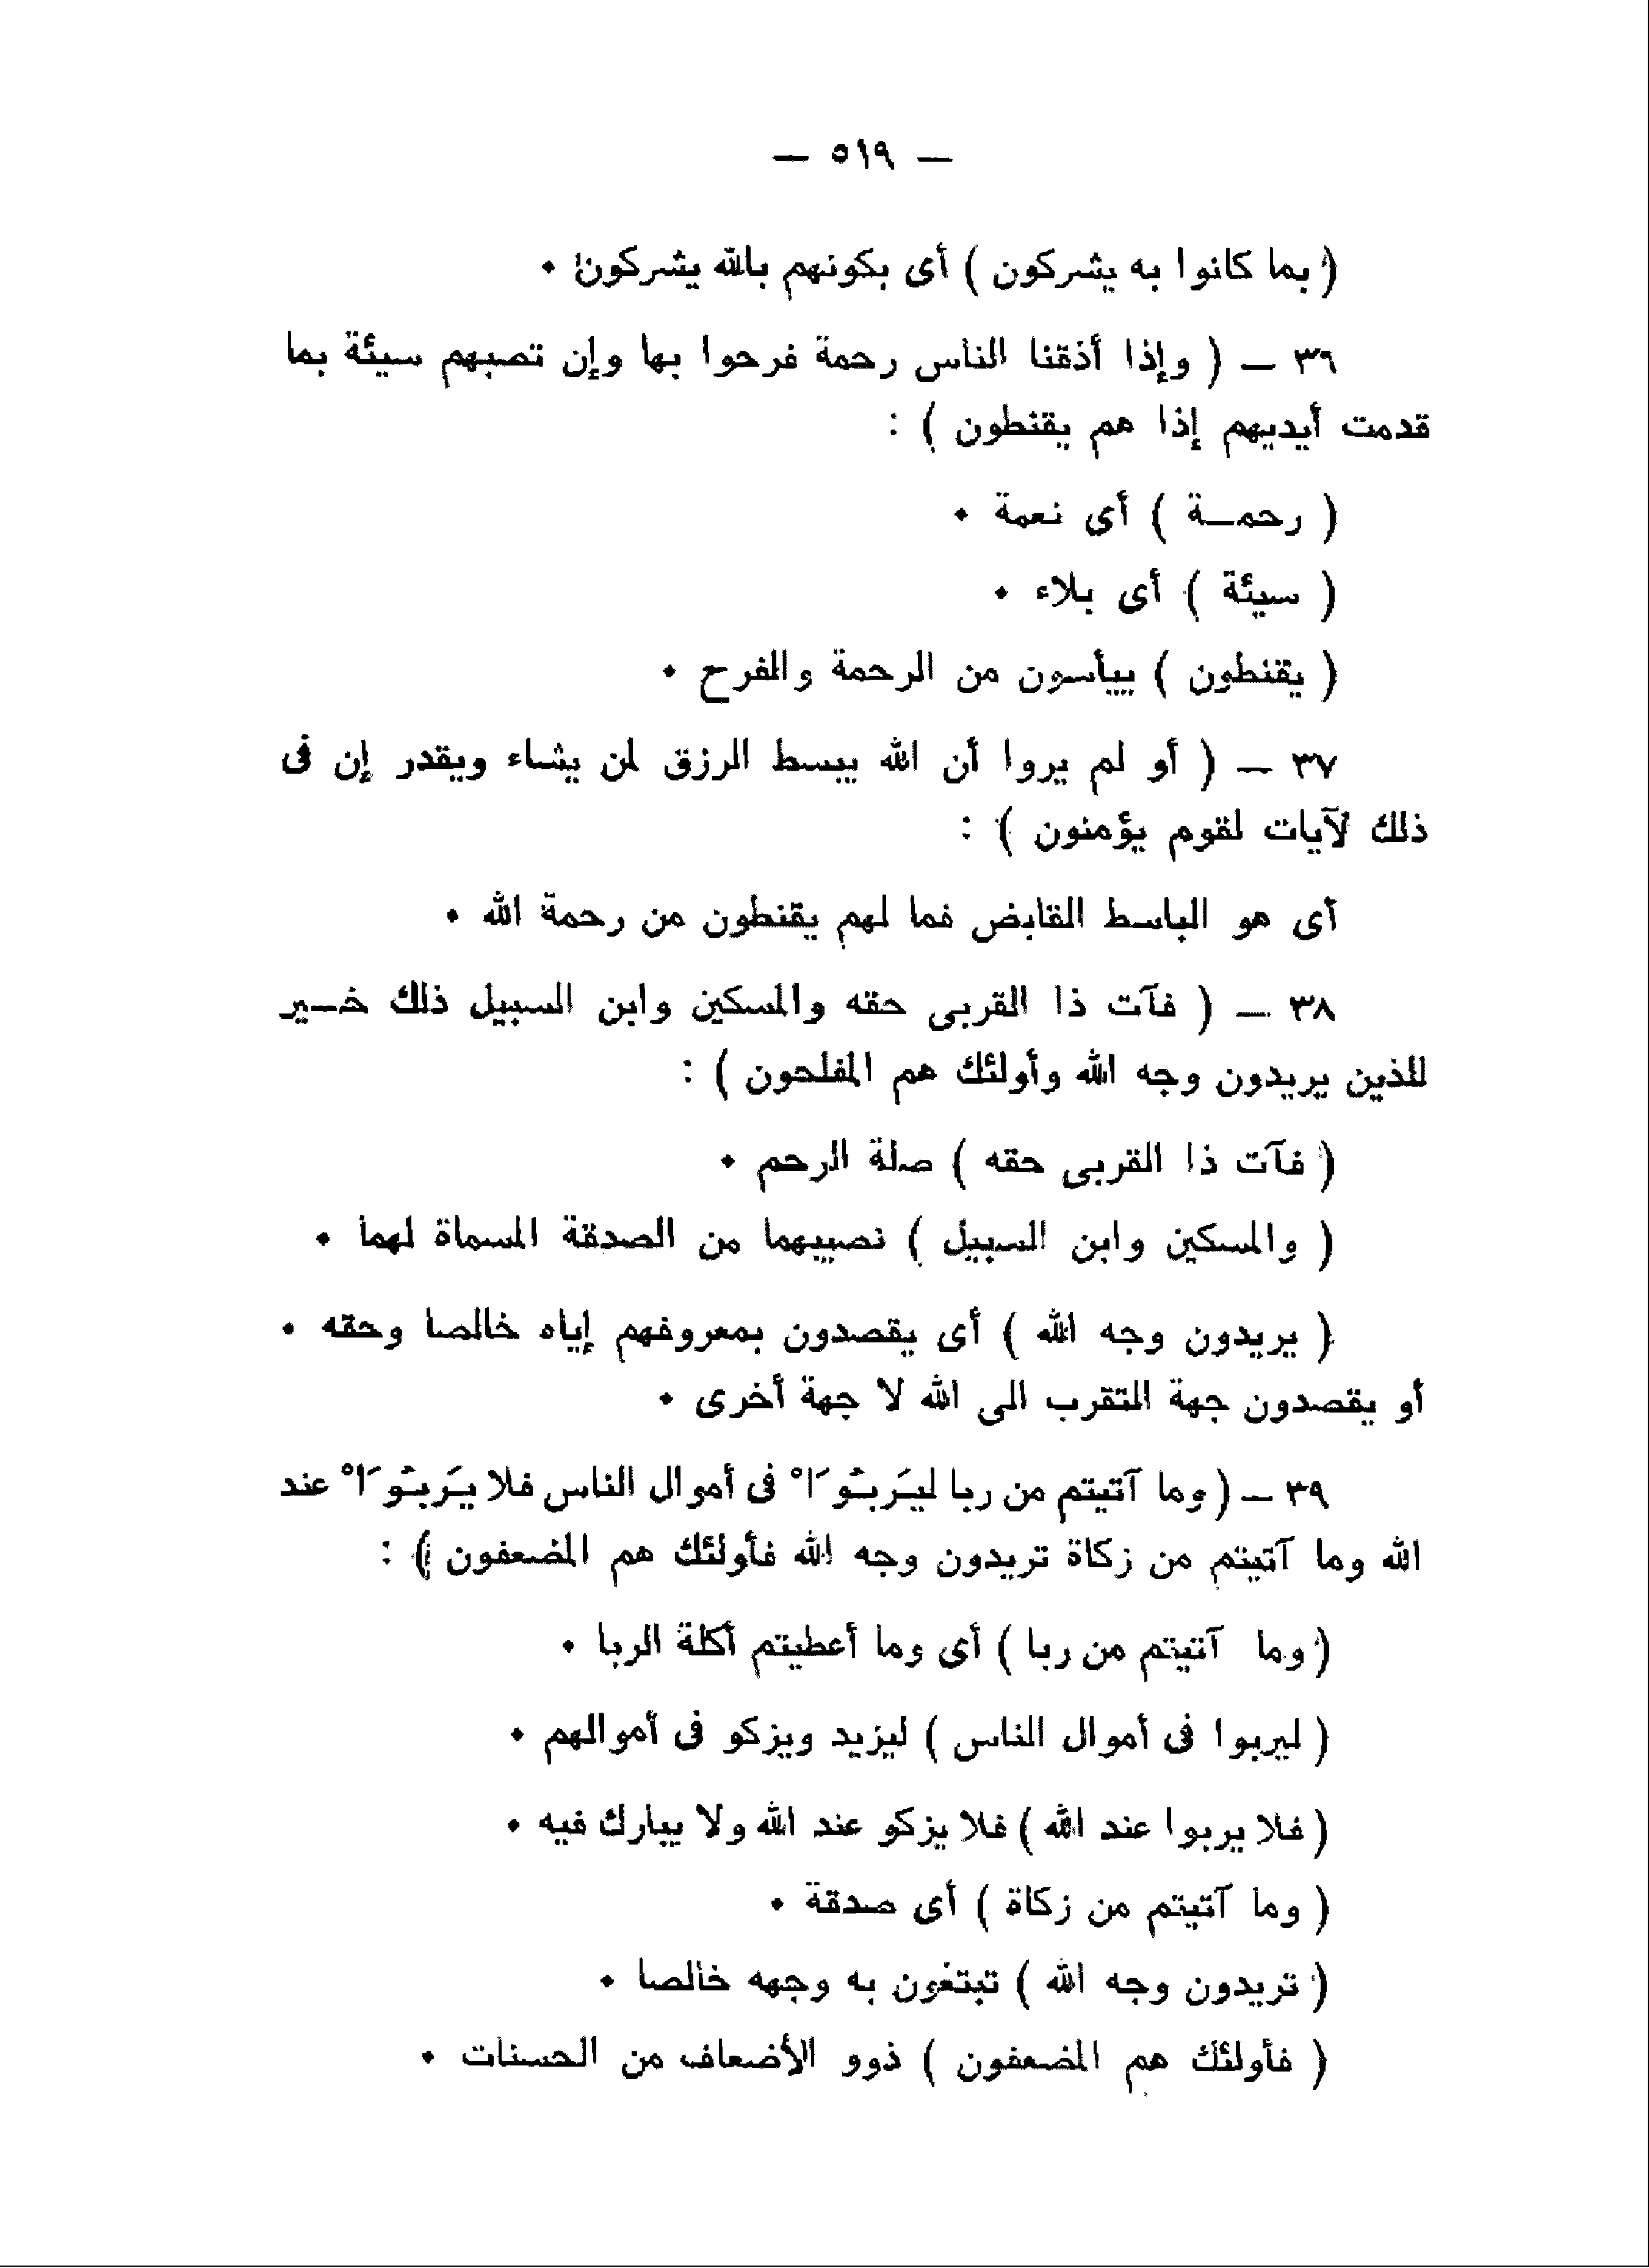 — ٥١٩ —
( بما كانوا به يشركون ) أى بكونهم بالله يشركون .
٣٦ — ( وإذا أذقنا الناس رحمة فرحوا بها وإن تصبهم سيئة بما
قدمت أيديهم إذا هم يقنطون ) :
( رحمـة ) أى نعمة .
( سيئة ) أى بلاء .
( يقنطون ) ييأسون من الرحمة والفرح .
٣٧ — ( أو لم يروا أن الله يبسط الرزق لمن يشاء ويقدر إن فى
ذلك لآيات لقوم يؤمنون ) :
أى هو الباسط القابض فما لهم يقنطون من رحمة الله .
٣٨ — ( فآت ذا القربى حقه والمسكين وابن السبيل ذلك خـير
للذين يريدون وجه الله وأولئك هم المفلحون ) :
( فآت ذا القربى حقه ) صلة الرحم .
( والمسكين وابن السبيل ) نصيبهما من الصدقة المسماة لهما .
( يريدون وجه الله ) أى يقصدون بمعروفهم إياه خالصا وحقه .
أو يقصدون جهة التقرب الى الله لا جهة أخرى .
٣٩ — ( وما آتيتم من ربا ليَربُوَاْ فى أموال الناس فلا يَربُوَاْ عند
الله وما آتيتم من زكاة تريدون وجه الله فأولئك هم المضعفون ) :
( وما آتيتم من ربا ) أى وما أعطيتم أكلة الربا .
( ليربوا فى أموال الناس ) ليزيد ويزكو فى أموالهم .
( فلا يربوا عند الله ) فلا يزكو عند الله ولا يبارك فيه .
( وما آتيتم من زكاة ) أى صدقة .
( تريدون وجه الله ) تبتغون به وجهه خالصا .
( فأولئك هم المضعفون ) ذوو الأضعاف من الحسنات .